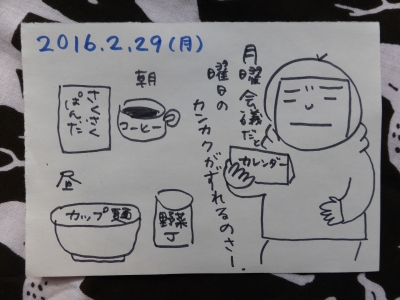 2016.2.29(月)
朝
さくさく
ぱんだ
コーヒー
昼
カップ麺
野菜
T
月曜会議だと
曜日の
カンカクがずれるのさー。
カレンダー